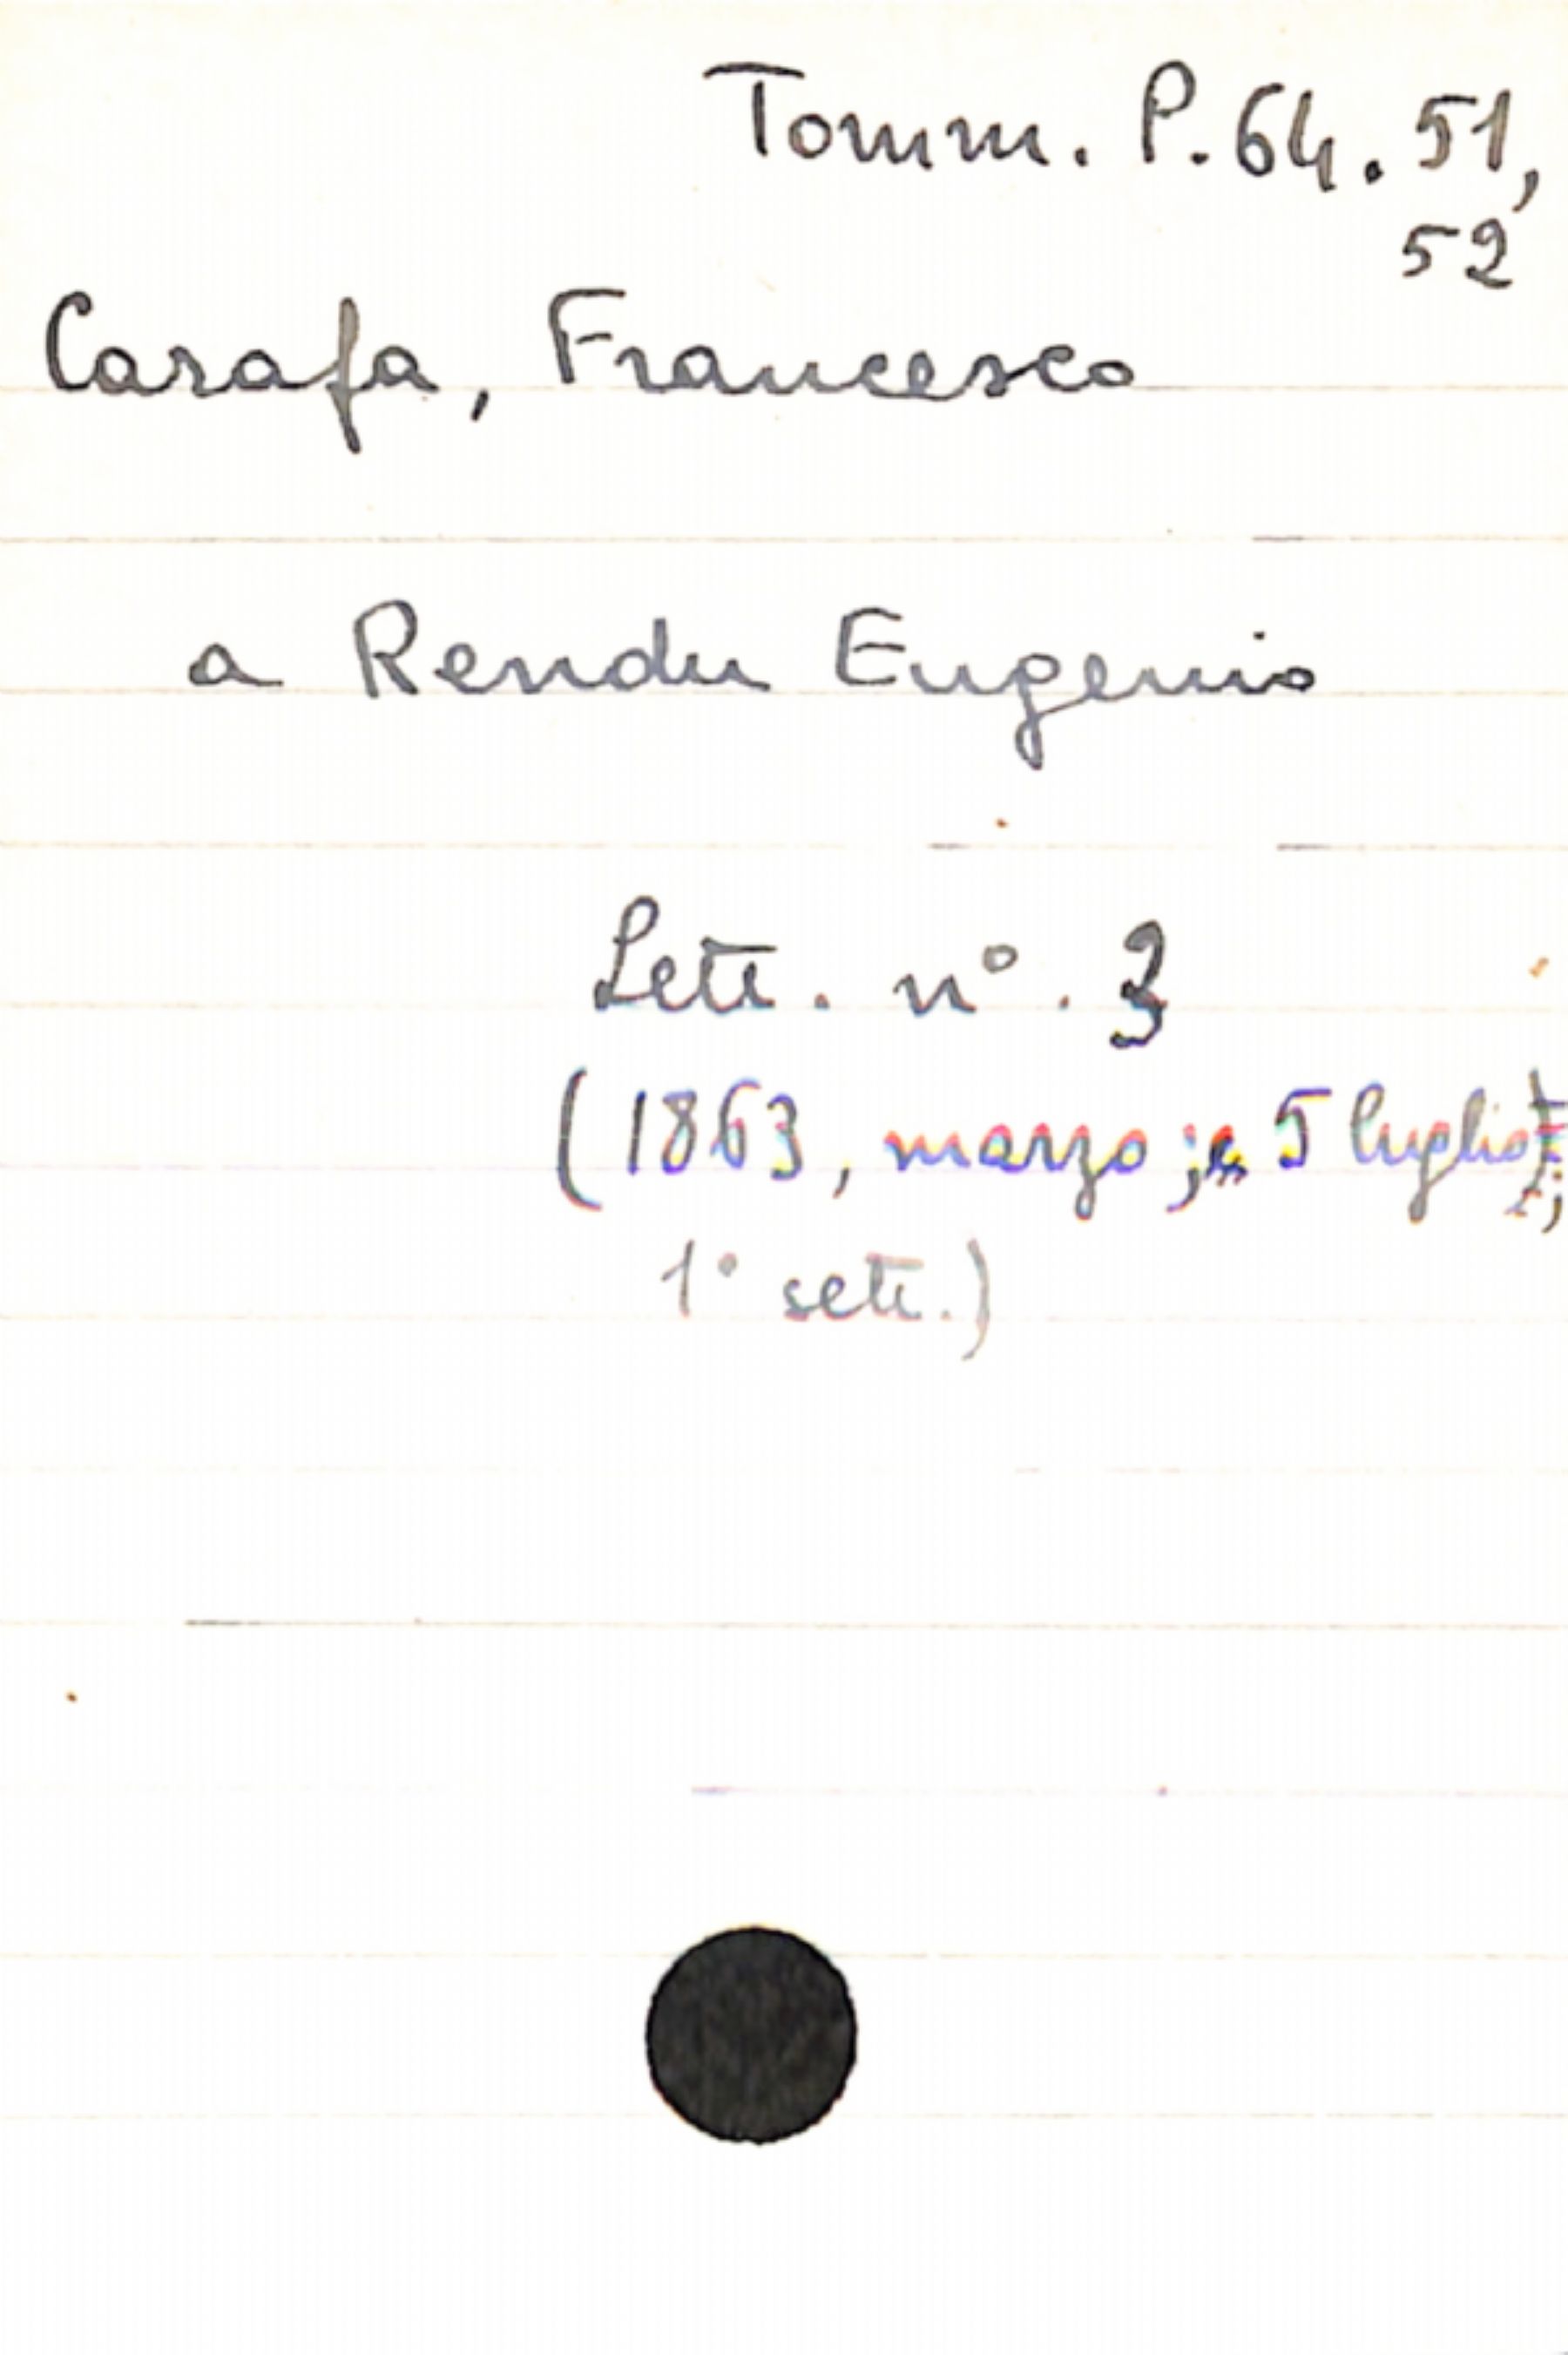 Tomm. P. 64. 51,
52
Carafa, Francesco
a Rendu Eugenio
Lett. n°. 3
(1863, marzo; 5 luglio;
1° sett.)